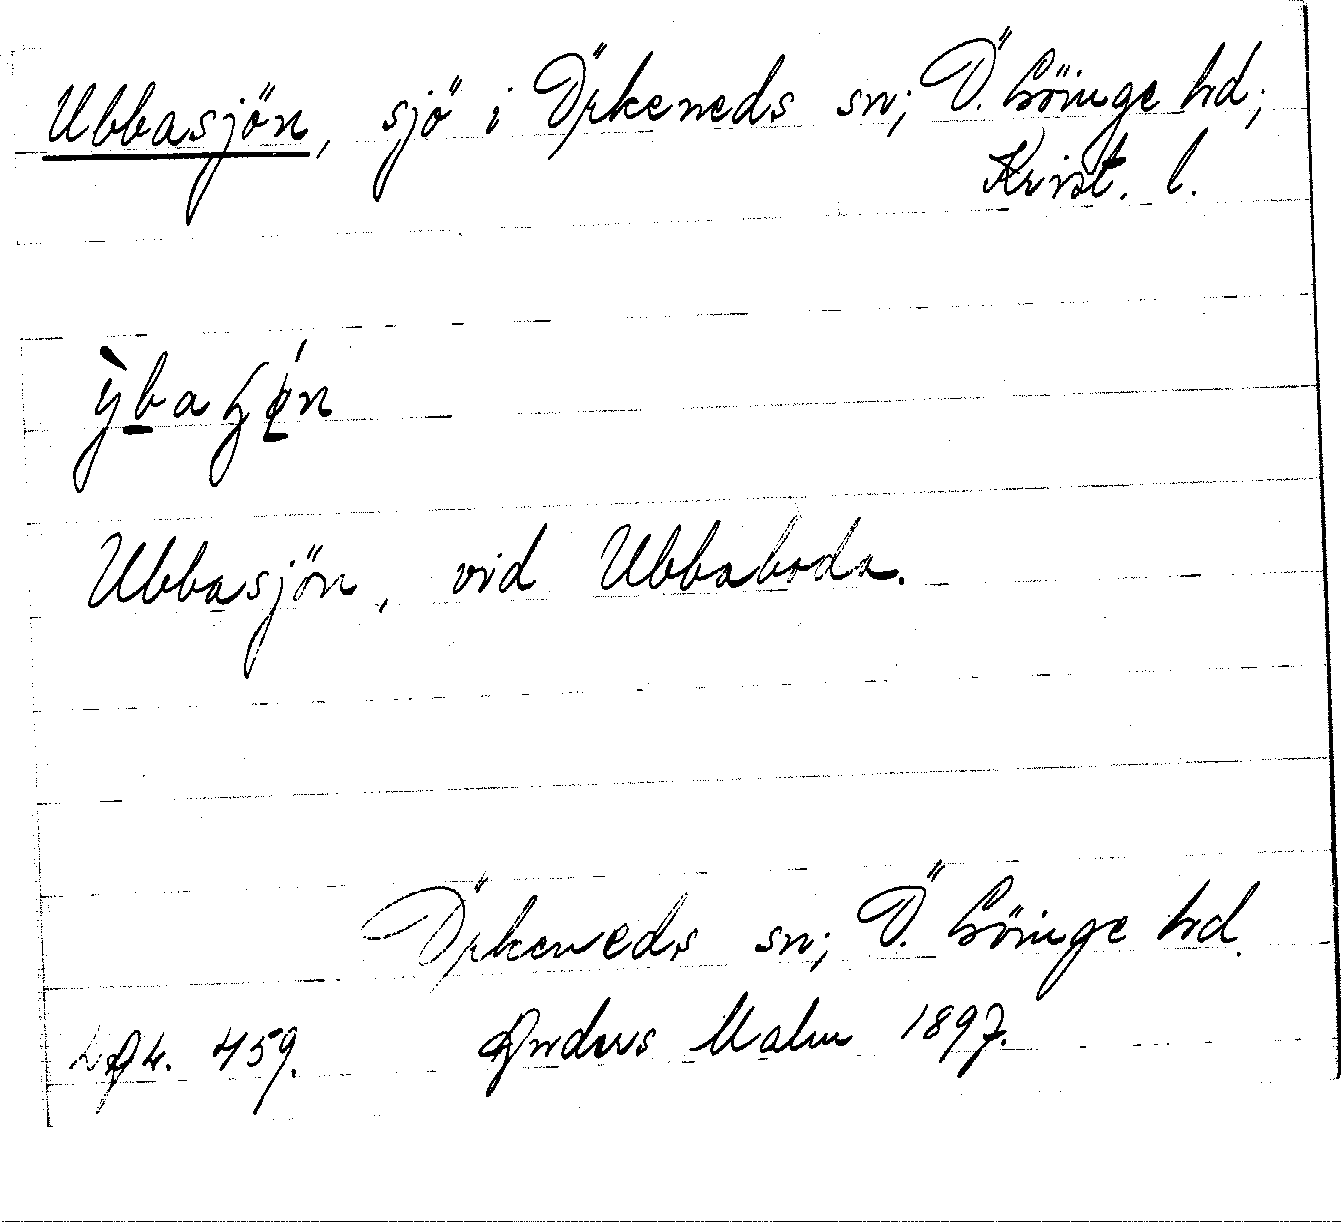 Ubbasjön, sjö i Örkeneds sn; Ö. Göinge hd;
Krist. l.
Ubbasjön, vid Ubbaboda.
Örkeneds sn; Ö. Göinge hd.
459. Anders Malm 1897.